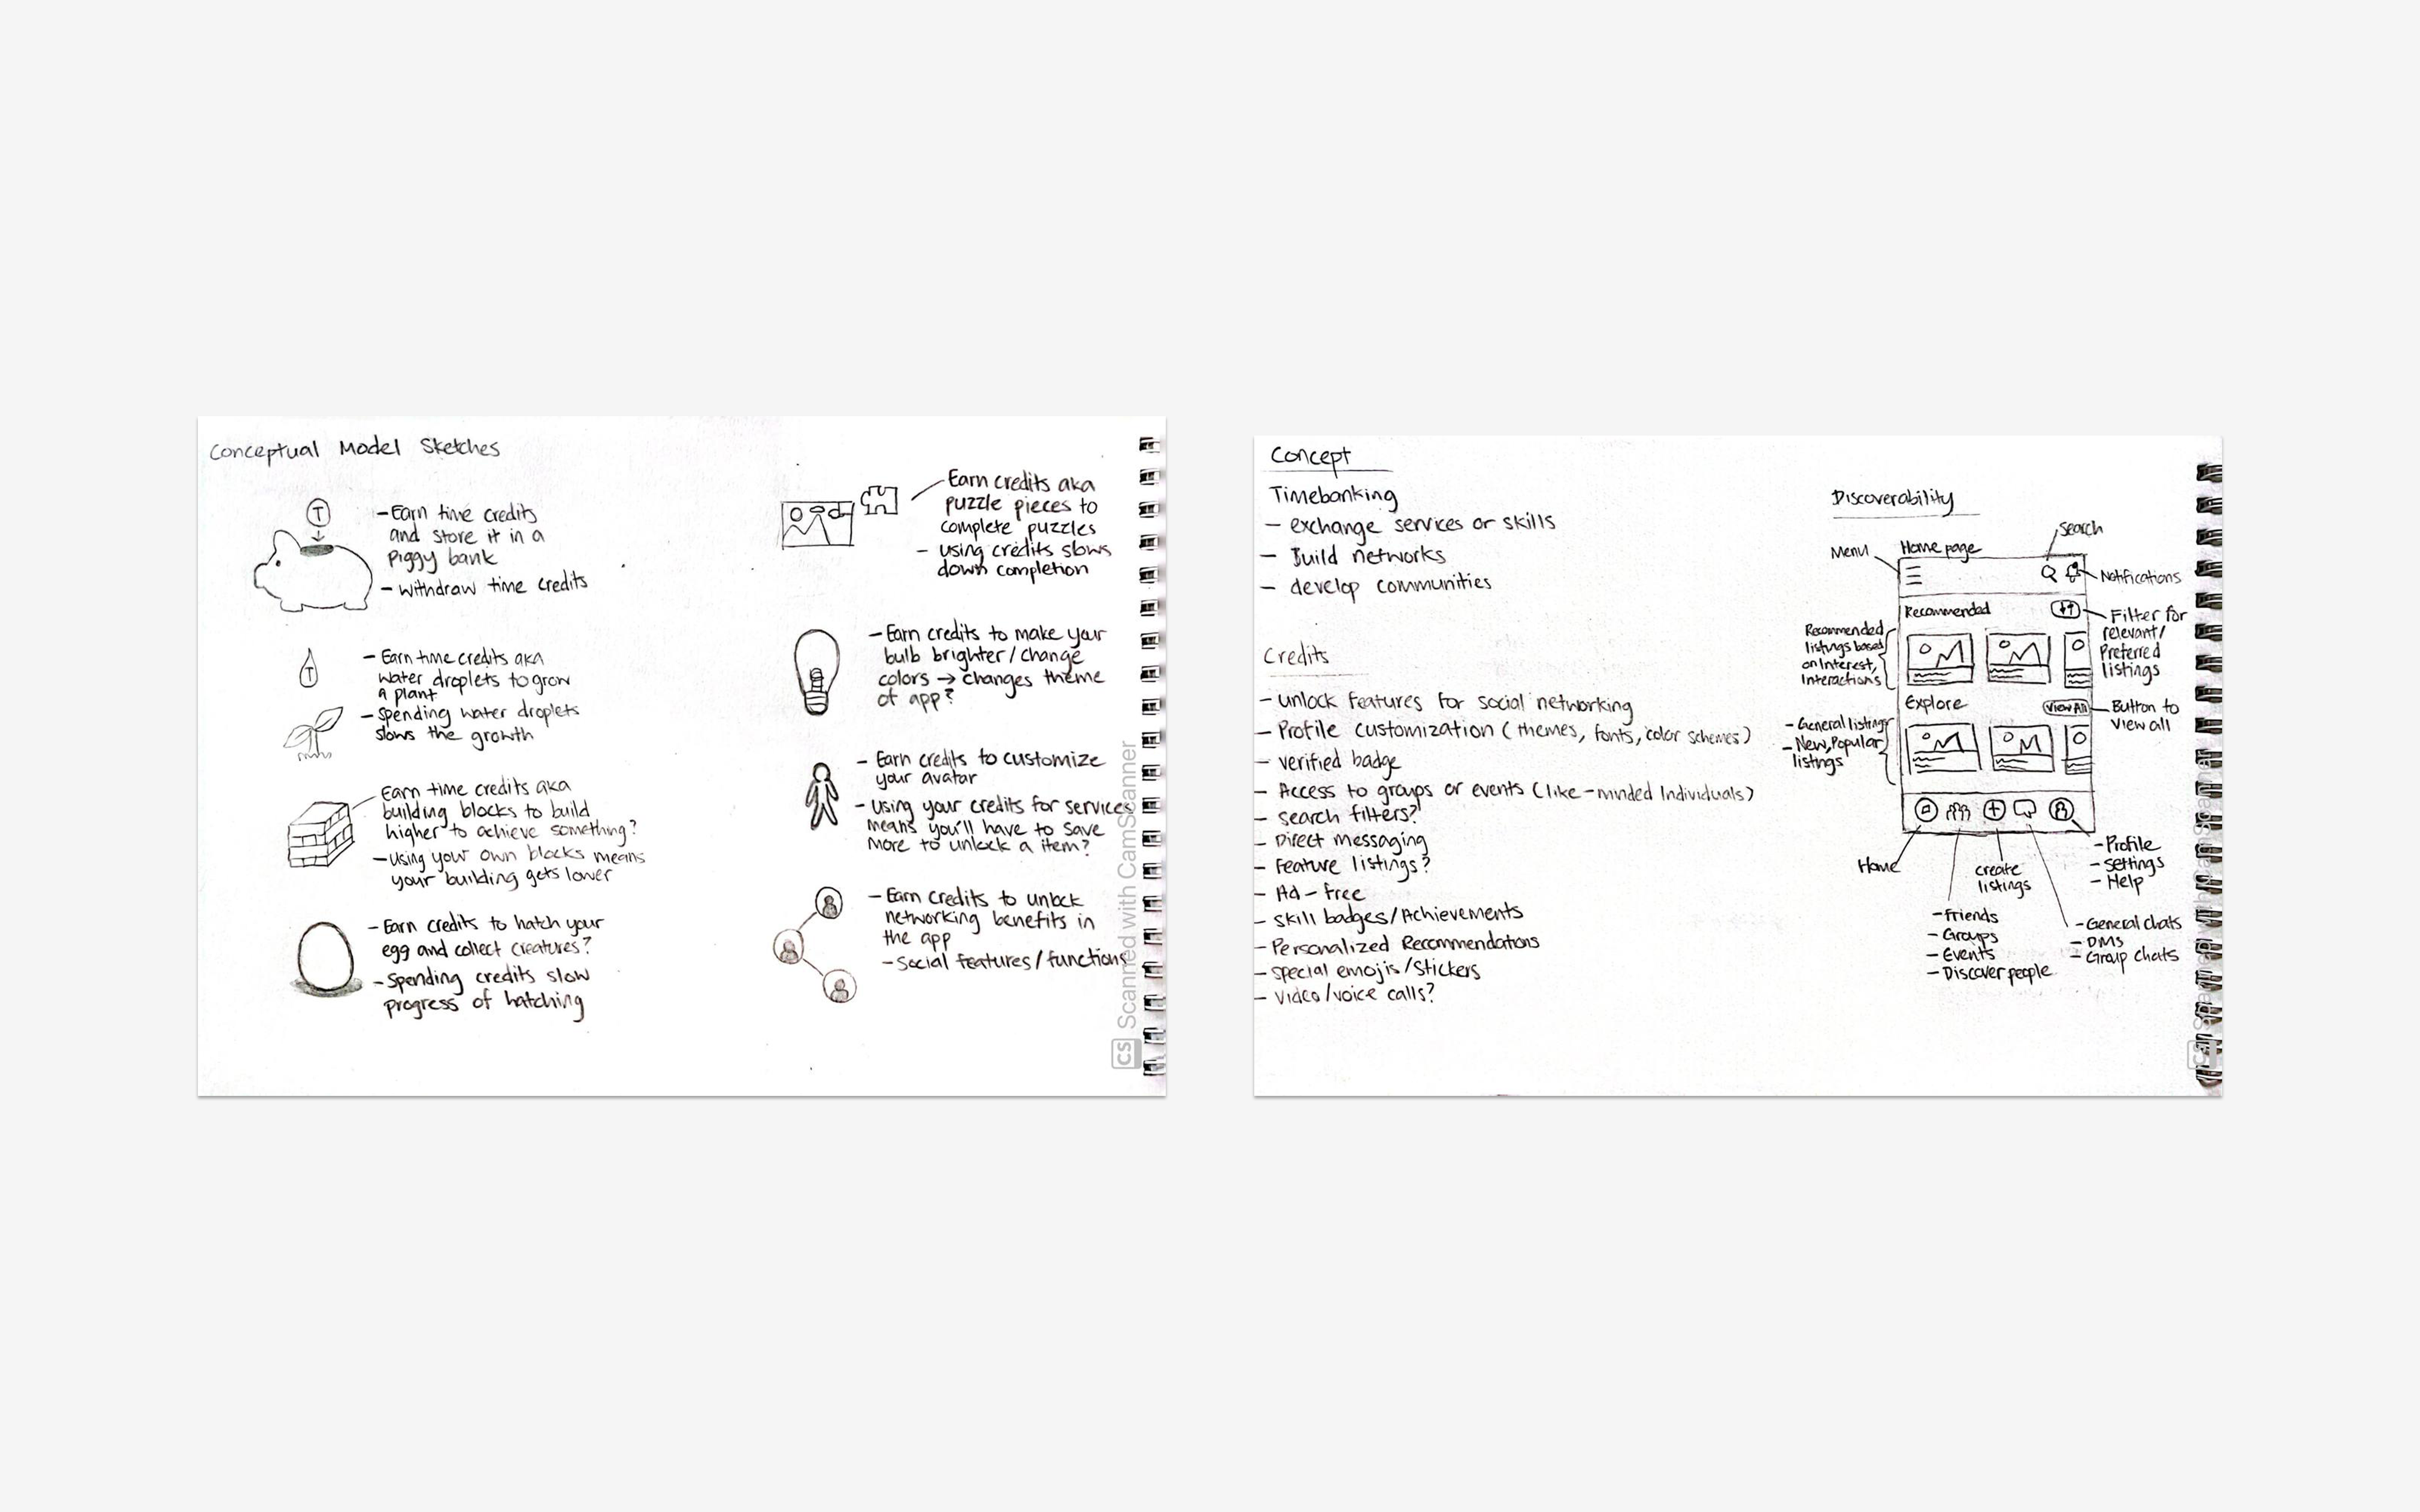 Conceptual Model Sketches
T
- Earn time credits
and store it in a
Piggy bank
- withdraw time credits
T
- Earn time credits aka
water droplets to grow
a plant
- Spending water droplets
slows the growth
Earn time credits aka
building blocks to build
higher to achieve something?
- Using your own blocks means
your building gets lower
- Earn credits to hatch your
egg and collect creatures?
- Spending credits slow
progress of hatching
Earn credits aka
puzzle pieces to
complete puzzles
- using credits slows
down completion
- Earn credits to make your
bulb brighter/change
colors → changes theme
of app?
- Earn credits to customize
your avatar
- using your credits for services
means you'll have to save
more to unlock a item?
- Earn credits to unlock
networking benefits in
the app
- Social features/functions
CS Scanned with CamScanner
Concept
Timebanking
- exchange services or skills
- Build networks
- develop communities
Credits
- unlock features for social networking
- Profile customization (themes, fonts, color schemes)
- verified badge
- Access to groups or events (like-minded individuals)
- search filters?
- Direct messaging
- Feature listings?
- Ad-free
- skill badges/Achievements
- Personalized Recommendations
- special emojis/Stickers
- Video/voice calls?
Discoverability
Search
Menu
Home page
Notifications
Recommended
Filter for
relevant/
Preferred
listings
Recommended
listings based
on Interest,
Interactions
Explore
View All
Button to
View all
- General listings
- New, Popular
listings
Home
create
listings
- Profile
- Settings
- Help
- Friends
- Groups
- Events
- Discover people
- General chats
- DMs
- Group chats
CS Scanned with CamScanner